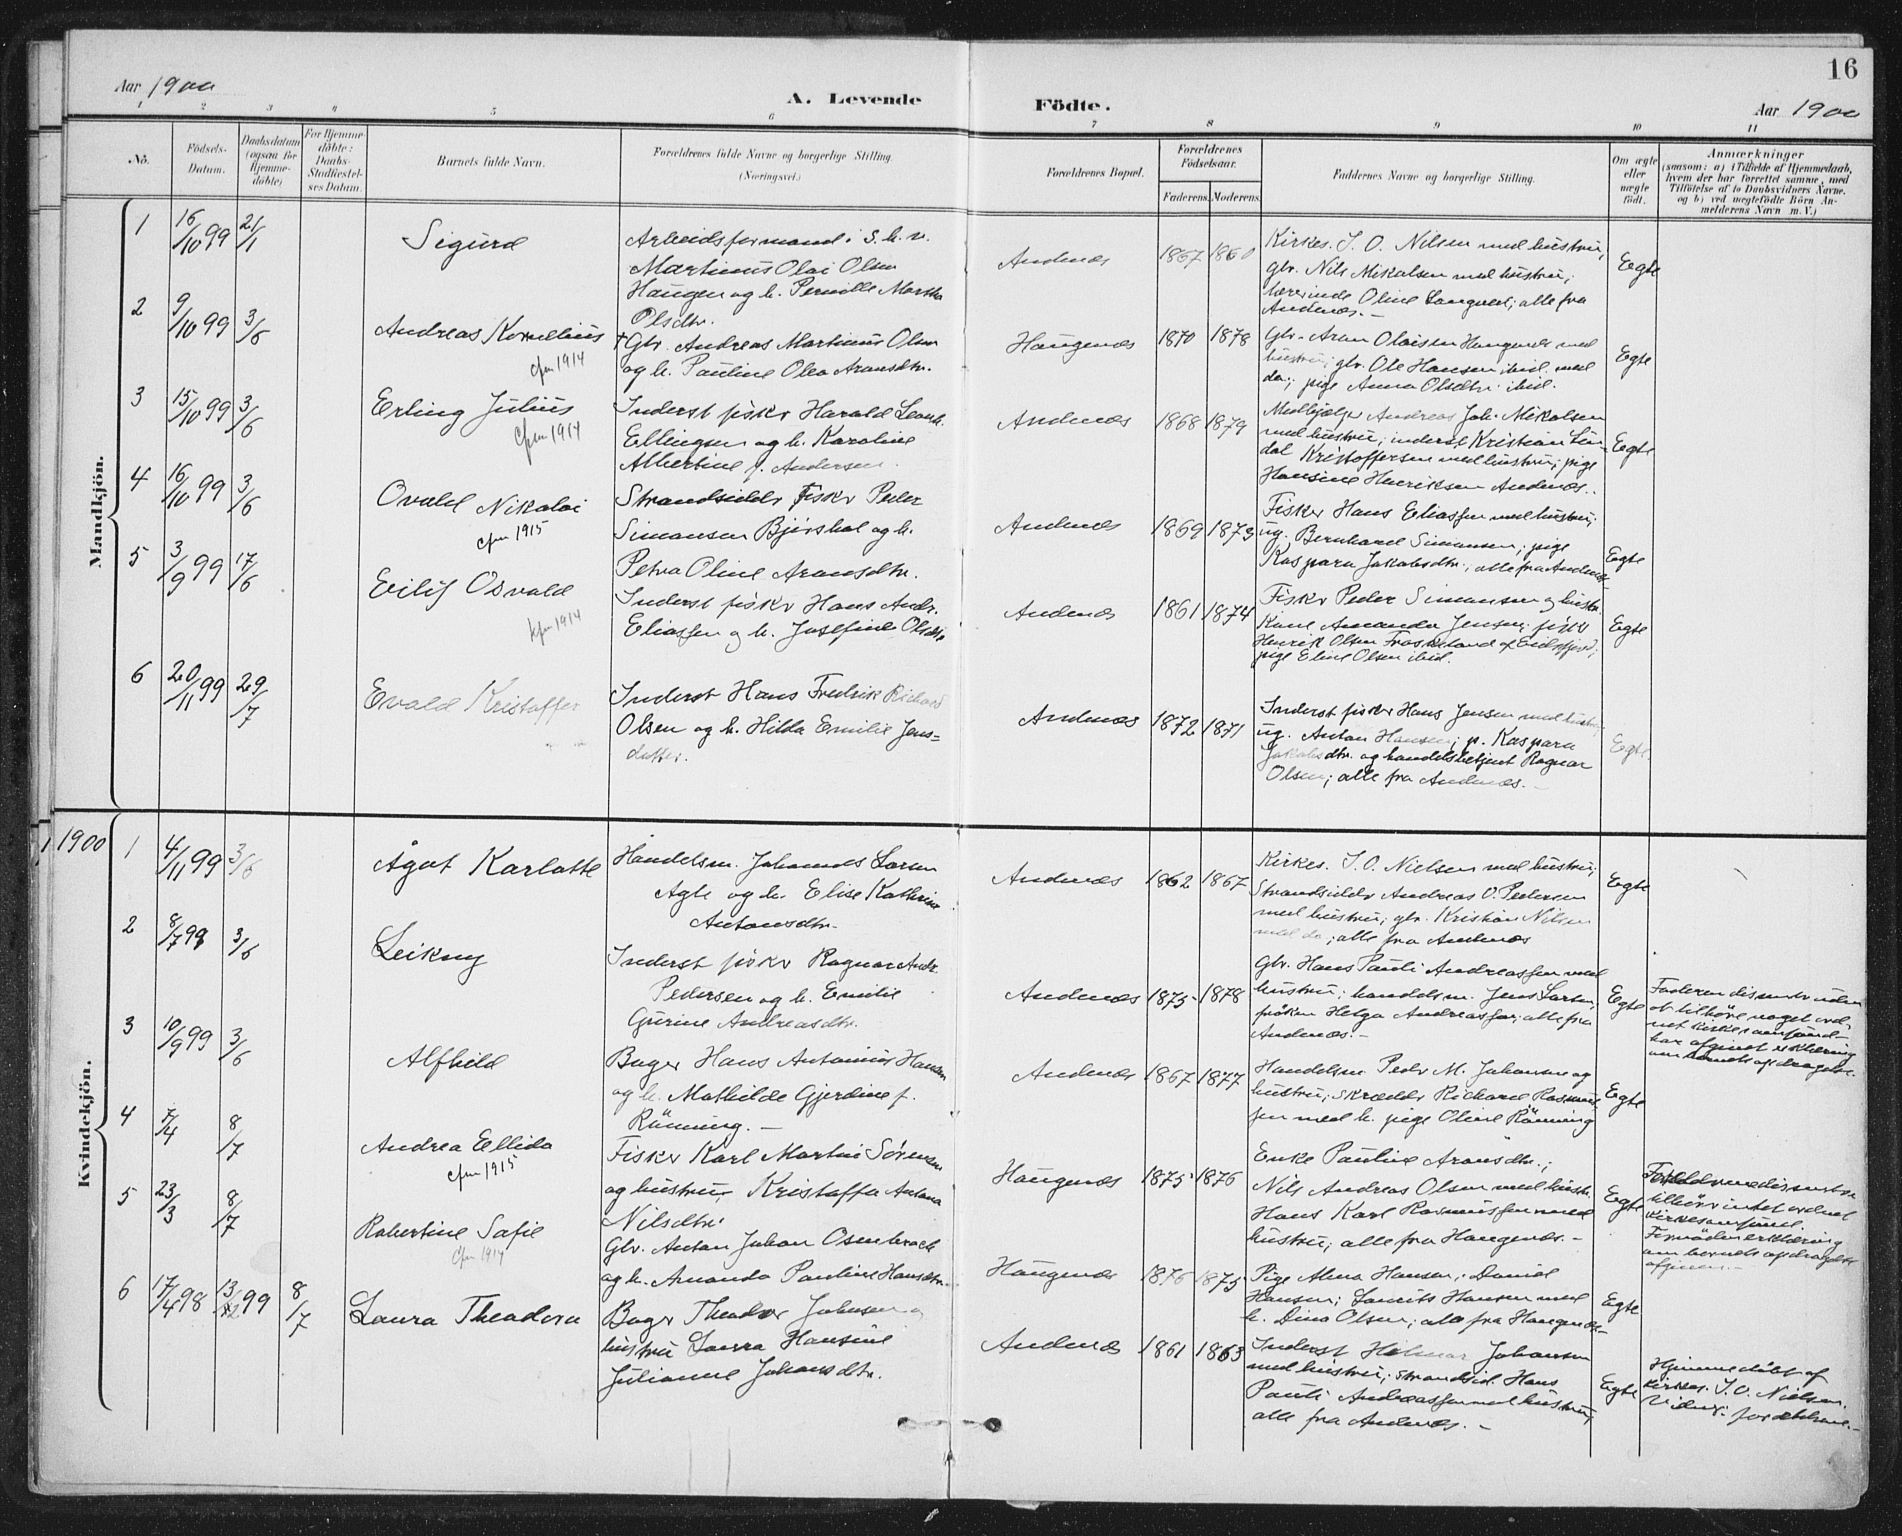 16
Aar 1900
A. Levende Födte.
Aar 1900
1 2 3 4 5 6 7 8 9 10 11
No.
Födsels-
Datum.
Daabsdatum
(ogsaa for
Hjemme-
döbte)
For Hjemme-
döbte:
Daabs-
Stadfæstel-
ses Datum.
Barnets fulde Navn.
Forældrenes fulde Navne og borgerlige Stilling.
(Næringsvei.)
Forældrenes Bopæl.
Forældrenes
Födselsaar.
Faderens. Moderens.
Faddernes Navne og borgerlige Stilling.
Om ægte
eller
uægte
födt.
Anmærkninger
(saasom: a) i Tilfælde af Hjemmedaab,
hvem der har forrettet samme, med
Tilföielse af to Daabsvidners Navne.
og b) ved uægtefödte Börn An-
melderens Navn m. V.)
Mandkjön.
1 16/10 99 21/1
Sigurd
Arbeidsformand i S. h. v.
Martinus Olai Olsen
Haugen og h. Pernille Martha
Olsdtr.
Andenæs 1867 1860
Kirkes. J. O. Nilsen med hustru;
gbr. Nils Mikalsen med hustru;
lærerinde Oline Langved; alle fra
Andenæs. –
Egte
2 9/10 99 3/6
Andreas Kornelius
cfm 1914
† Gbr. Andreas Martinus Olsen
og h. Pauline Olea Aronsdtr.
Haugenæs 1870 1878
Gbr. Aron Olaisen Haugenæs med
hustru; gbr. Ole Hansen ibid. med
do; pige Anna Olsdtr. ibid.
Egte
3 15/10 99 3/6
Erling Julius
cfm 1914
Inderst fisker Harald Leonh.
Ellingsen og h. Karoline
Albertine f. Andersen.
Andenæs 1868 1879
Medhjælper Andreas Joh. Mikalsen
med hustru; inderst Kristian Lin-
dal Kristoffersen med hustru; pige
Hansine Henriksen Andenæs.
Egte
4 16/10 99 3/6
Ovald Nikolai
cfm 1915
Strandsidder Fisker Peder
Simonsen Bjørshol og h.
Petra Oline Aronsdtr.
Andenæs 1869 1873
Fisker Hans Eliassen med hustru;
ug. Bernhard Simonsen; pige
Kaspara Jakobsdtr., alle fra Andenæs
Egte
5 3/9 99 17/6
Eilif Osvald
kfm 1914
Inderst fisker Hans Andr.
Eliassen og h. Josefine Olsdtr.
Andenæs 1861 1874
Fisker Peder Simonsen og hustr.
Kone Amanda Jensen; fisker
Henrik Olsen Froskeland af Eidsfjord;
pige Eline Olsen ibid.
Egte
6 20/11 99 29/7
Evald Kristoffer
Inderst Hans Fredrik Richard
Olsen og h. Hilda Emilie Jens=
datter.
Andenæs 1872 1871
Inderst fisker Hans Jensen med hustru
ug. Anton Hansen; p. Kaspara
Jakobsdtr. og handelsbetjent Ragnar
Olsen; alle fra Andenæs. –
Egte
1900
Kvindekjön.
1 4/11 99 3/6
Ågot Karlotte
Handelsm. Johannes Larsen
Agte og h. Elise Kathrine
Antonsdtr.
Andenæs 1862 1867
Kirkes. J. O. Nielsen med hustru;
Strandsidder Andreas O. Pedersen
med hustru; gbr. Kristian Nilsen
med do; alle fra Andenæs
Egte
2 8/7 99 3/6
Leikny
Inderst fisker Ragnar Andr.
Pedersen og h. Emilie
Gurine Andreasdtr.
Andenæs 1875 1878
Gbr. Hans Pauli Andreassen med
hustru; handelsm. Jens Larsen,
frøken Helga Andreassen; alle fra
Andenæs. –
Egte
Faderen dissenter uden
at tilhøre noget ord-
net kirkesamfund –
har afgivet erklæring
om barnets opdragelse.
3 10/9 99 3/6
Alfhild
Bager Hans Antonius Hansen
og h. Mathilde Gjerdine f.
Rönning. –
Andenæs 1867 1877
Handelsm Peder M. Johansen og
hustru; skrædder Richard Rasmus
sen med h. pige Oline Rönning
Egte
4 7/4 8/7
Andrea Ellida
cfm 1915
Fisker Karl Martin Sørensen
og hustru Kristoffa Antona
Nilsdtr.
Haugenæs 1875 1876
Enke Pauline Aronsdtr.;
Nils Andreas Olsen med hustr.
Hans Karl Rasmussen med
hustru; alle fra Haugenæs. –
Egte
Forældrene dissentere
tilhører intet ordnet
kirkesamfund.
Fornøden erklæring
om barnets opdragelse
afgiven. –
5 23/3 8/7
Robertine Sofie
cfm 1914
Gbr. Anton Johan Osenbrock
og h. Amanda Pauline Hansdtr.
Haugenæs 1876 1875
Pige Alma Hansen; Daniel
Hansen; Laurits Hansen med
h. Dina Olsen; alle fra Haugenæs –
Egte
6 17/4 98 13/12 99 8/7
Laura Theodora
Bager Theodor Johnsen og
hustru Laura Hansine
Julianne Johansdtr.
Andenæs 1861 1863
Inderst Hilmar Johansen
med hustru; strandsid. Hans
Pauli Andreassen med hustru;
alle fra Andenæs. –
Egte
Hjemmedøbt af
kirkes. J. O. Nielsen.
Vidner: forældrene. –